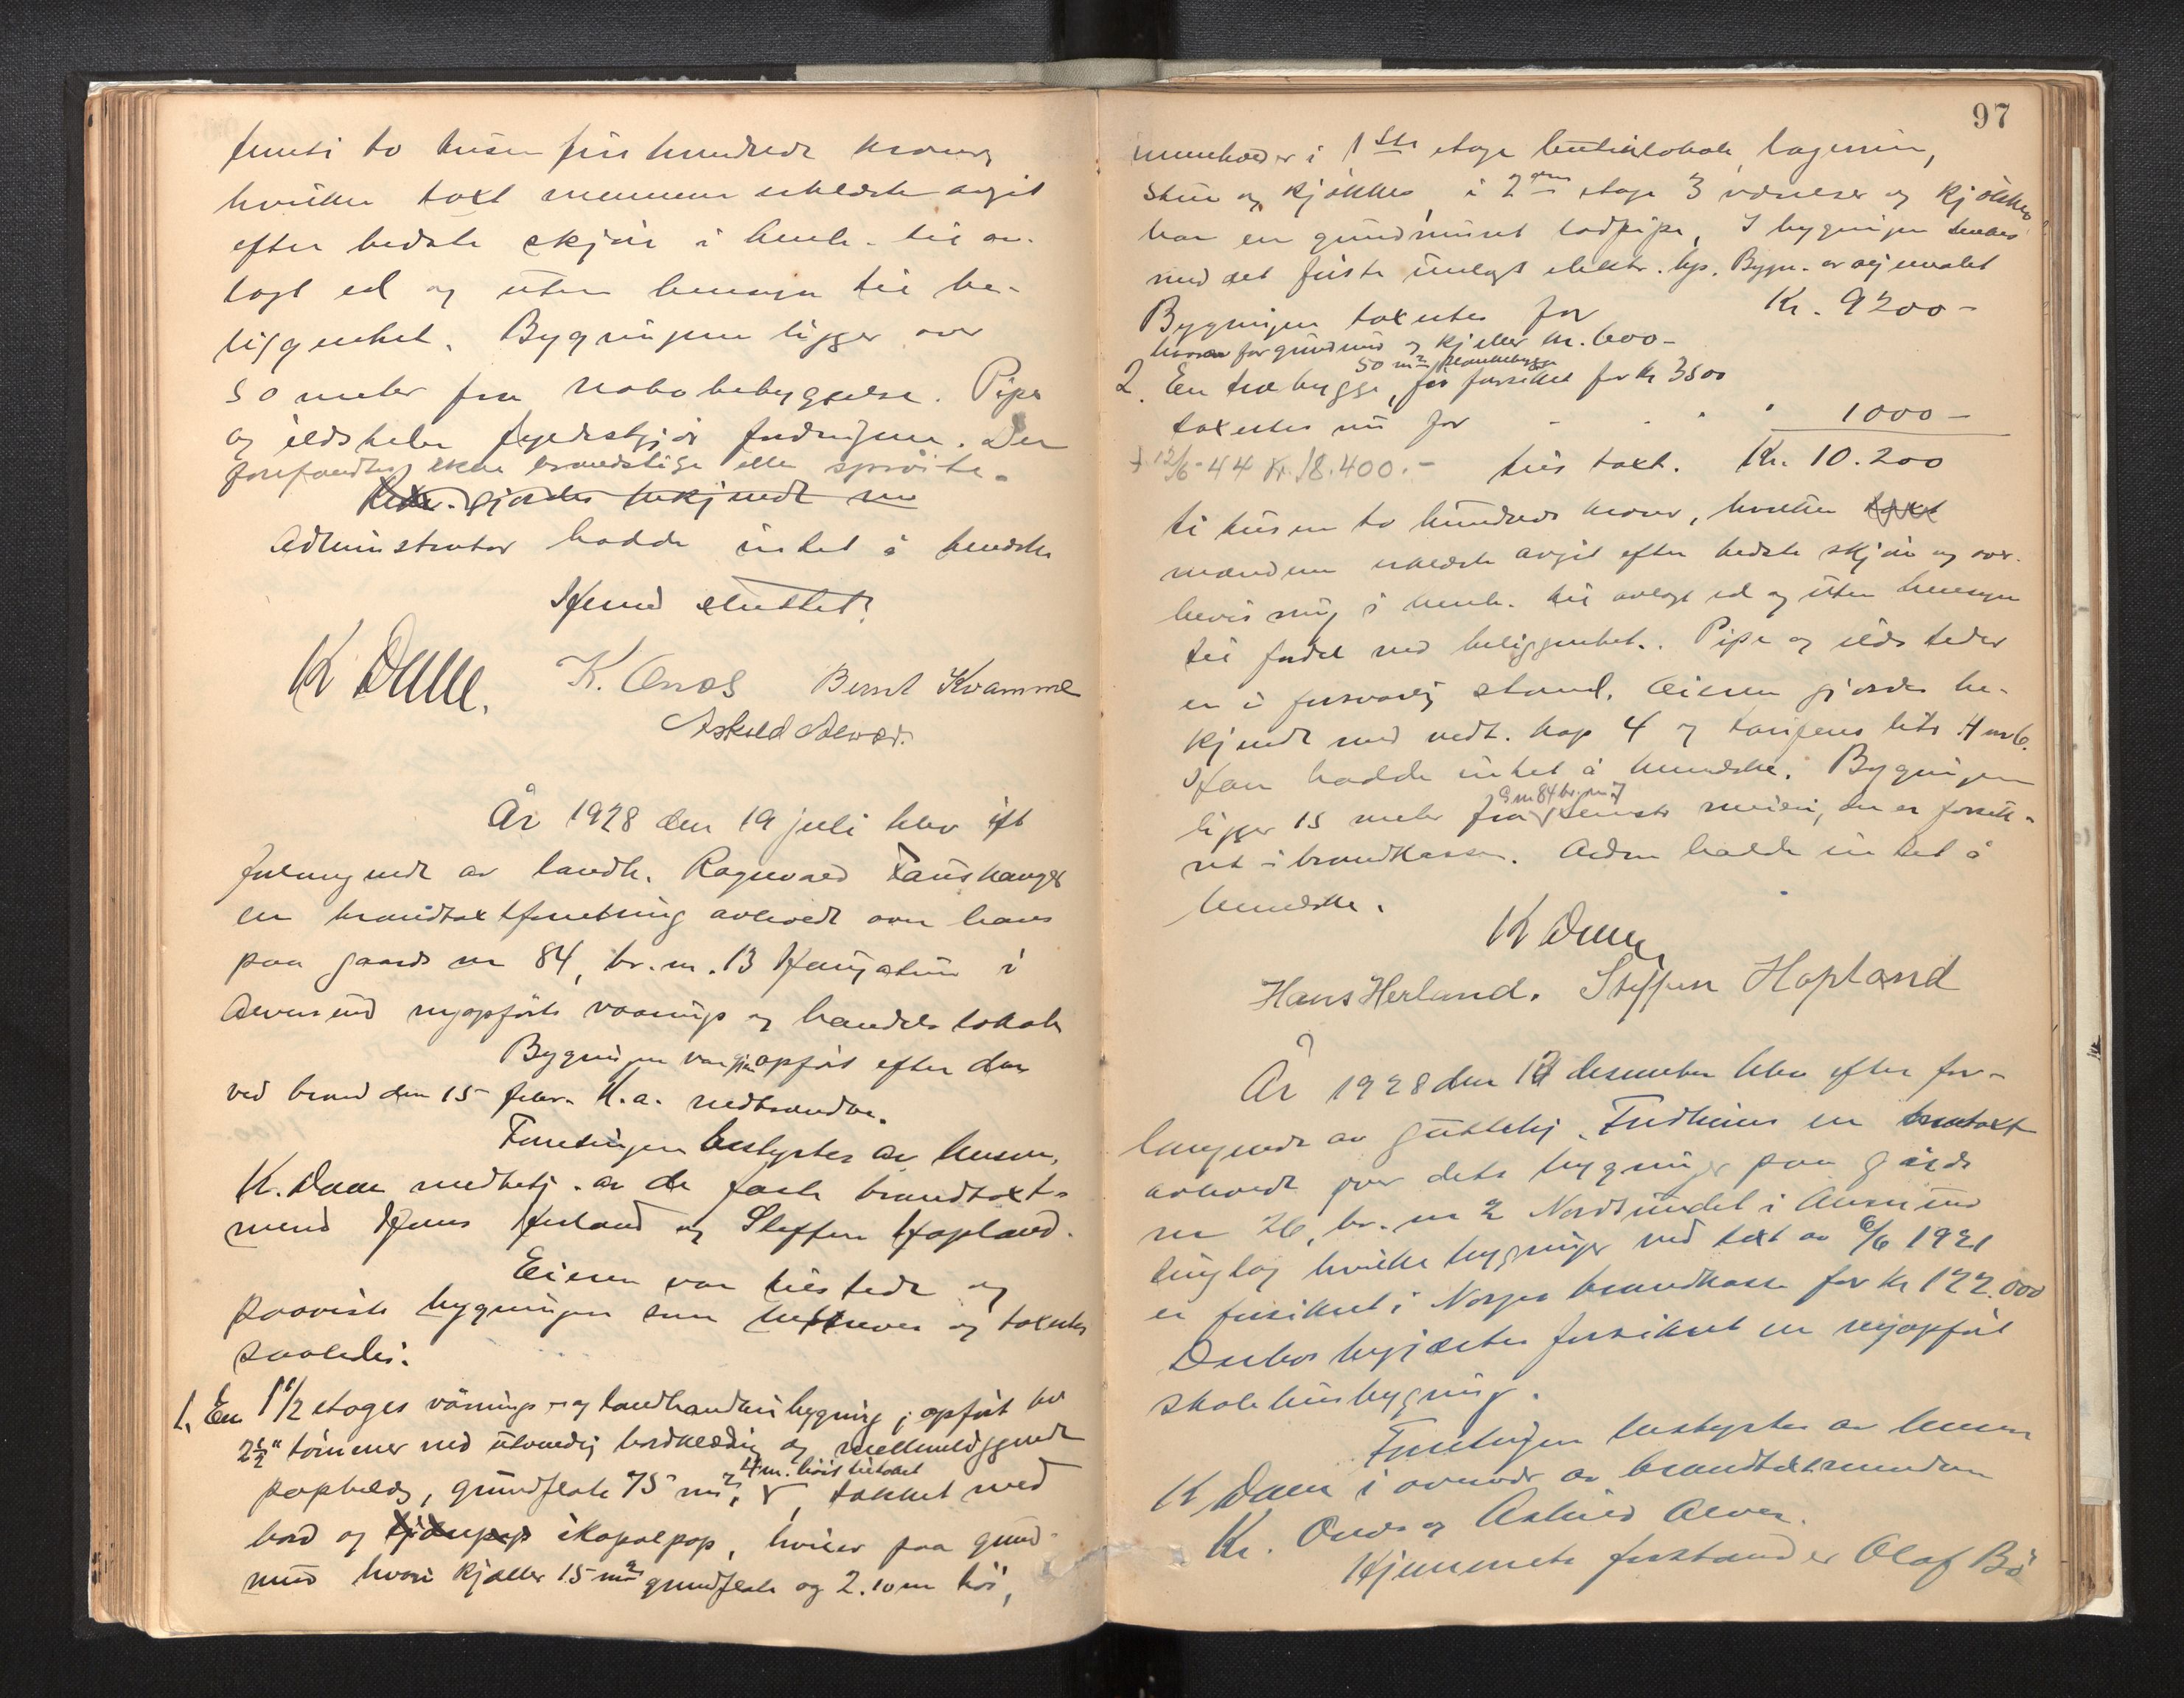 femti to tusen fire hundrede kroner,
hvilken taxt mennene erklærte avgit
efter bedste skjøn i henh. til av-
lagt ed og uten hensyn til be-
liggenhet. Bygningene ligger over
50 meter fra nabobebyggelse. Pipe
og ildsteder fyldestgjør fordringene. Der
forefandtes ikke brandstige eller sprøite.
gjordes bekjendt med
Administrator hadde intet å bemerke
Hermed sluttet.
K Daae. K. Onæs Bernt Kvamme
Askild Alver.
År 1928 den 19 juli blev ift
forlangende av landh. Ragnvald Taushanger
en brandtaxtforretning avholdt over hans
paa gaards nr 84, br. nr. 13 Haugatun i
Alversund nyopførte vaanings og handelslokale
Bygningen var gjenopført efter den
ved brand den 15 febr. d.a. nedbrændte.
Forretningen bestyrtes av lensm.
K. Daae medhetj. av de faste brandtaxt-
mend Hans Herland og Steffen Hopland.
Eieren var tilstede og
paaviste bygningen som beskreves og taxertes
saaledes:
1. En 1 1/2 etages vånings- og landhandlerbygning, opført av
2 1/2" tømmer med utvendig bordklædning og mellemliggende
4 m. høit til taket
papbelæg, grundflate 75 m², takket med
bord og skapalpap, hviler paa grund-
mur hvori kjæller 15 m² grundflate og 2.10 m høi,
97
inneholder i 1ste etage butiklokale, lagerrum,
stue og kjøkken, i 2den etage 3 værelser og kjøkken
har en grundmuret lodpipe, I bygningen
med det første innlagt elektr. lys. Bygn. er ej malet
Bygningen taxertes for Kr. 9200 -
hvorav for grundmur og kjeller kr. 600 -
50 m² plankebygge
2. En træbygge, før forsikret for kr 3500
taxertes nu for - " " 1000 -
12/6-44 Kr. 18.400.- tils taxt. Kr. 10.200
ti tusen to hundrede kroner, hvilken taxt
mændene erklærte avgit efter bedste skjøn og over-
bevisning i henh. til avlagt ed og uten hensyn
til fordel ved beliggenhet. Pipe og ildsteder
er i forsvarlig stand. Eieren gjordes be-
kjendt med vedt. kap 4 og tarifens litr H nr 6.
Han hadde intet å bemerke. Bygningen
G nr 84 br. nr 7
ligger 15 meter fra eneste nærin, der er forsik-
ret i brandkassen. Anden hadde intet å
bemerke.
K Daae
Hans Herland. Steffen Hopland
År 1928 den 12 desember blev efter for-
langende av guttehj. Fredheims en brantaxt
avholdt over dets bygninger paa gårds
nr 26, br. nr 2 Nordsundet i Alversund
tinglag hvilke bygninger ved taxt av 6/6 1921
er forsikret i Norges brandkasse for kr 122.000
Derhos begjærtes forsikret en nyopført
skolehusbygning.
Forretningen bestyrtes av lensm
K Daae i overvær av brandtaxtmendene
Kr. Onæs og Askild Alver.
Hjemmets forstander Olaf Bø